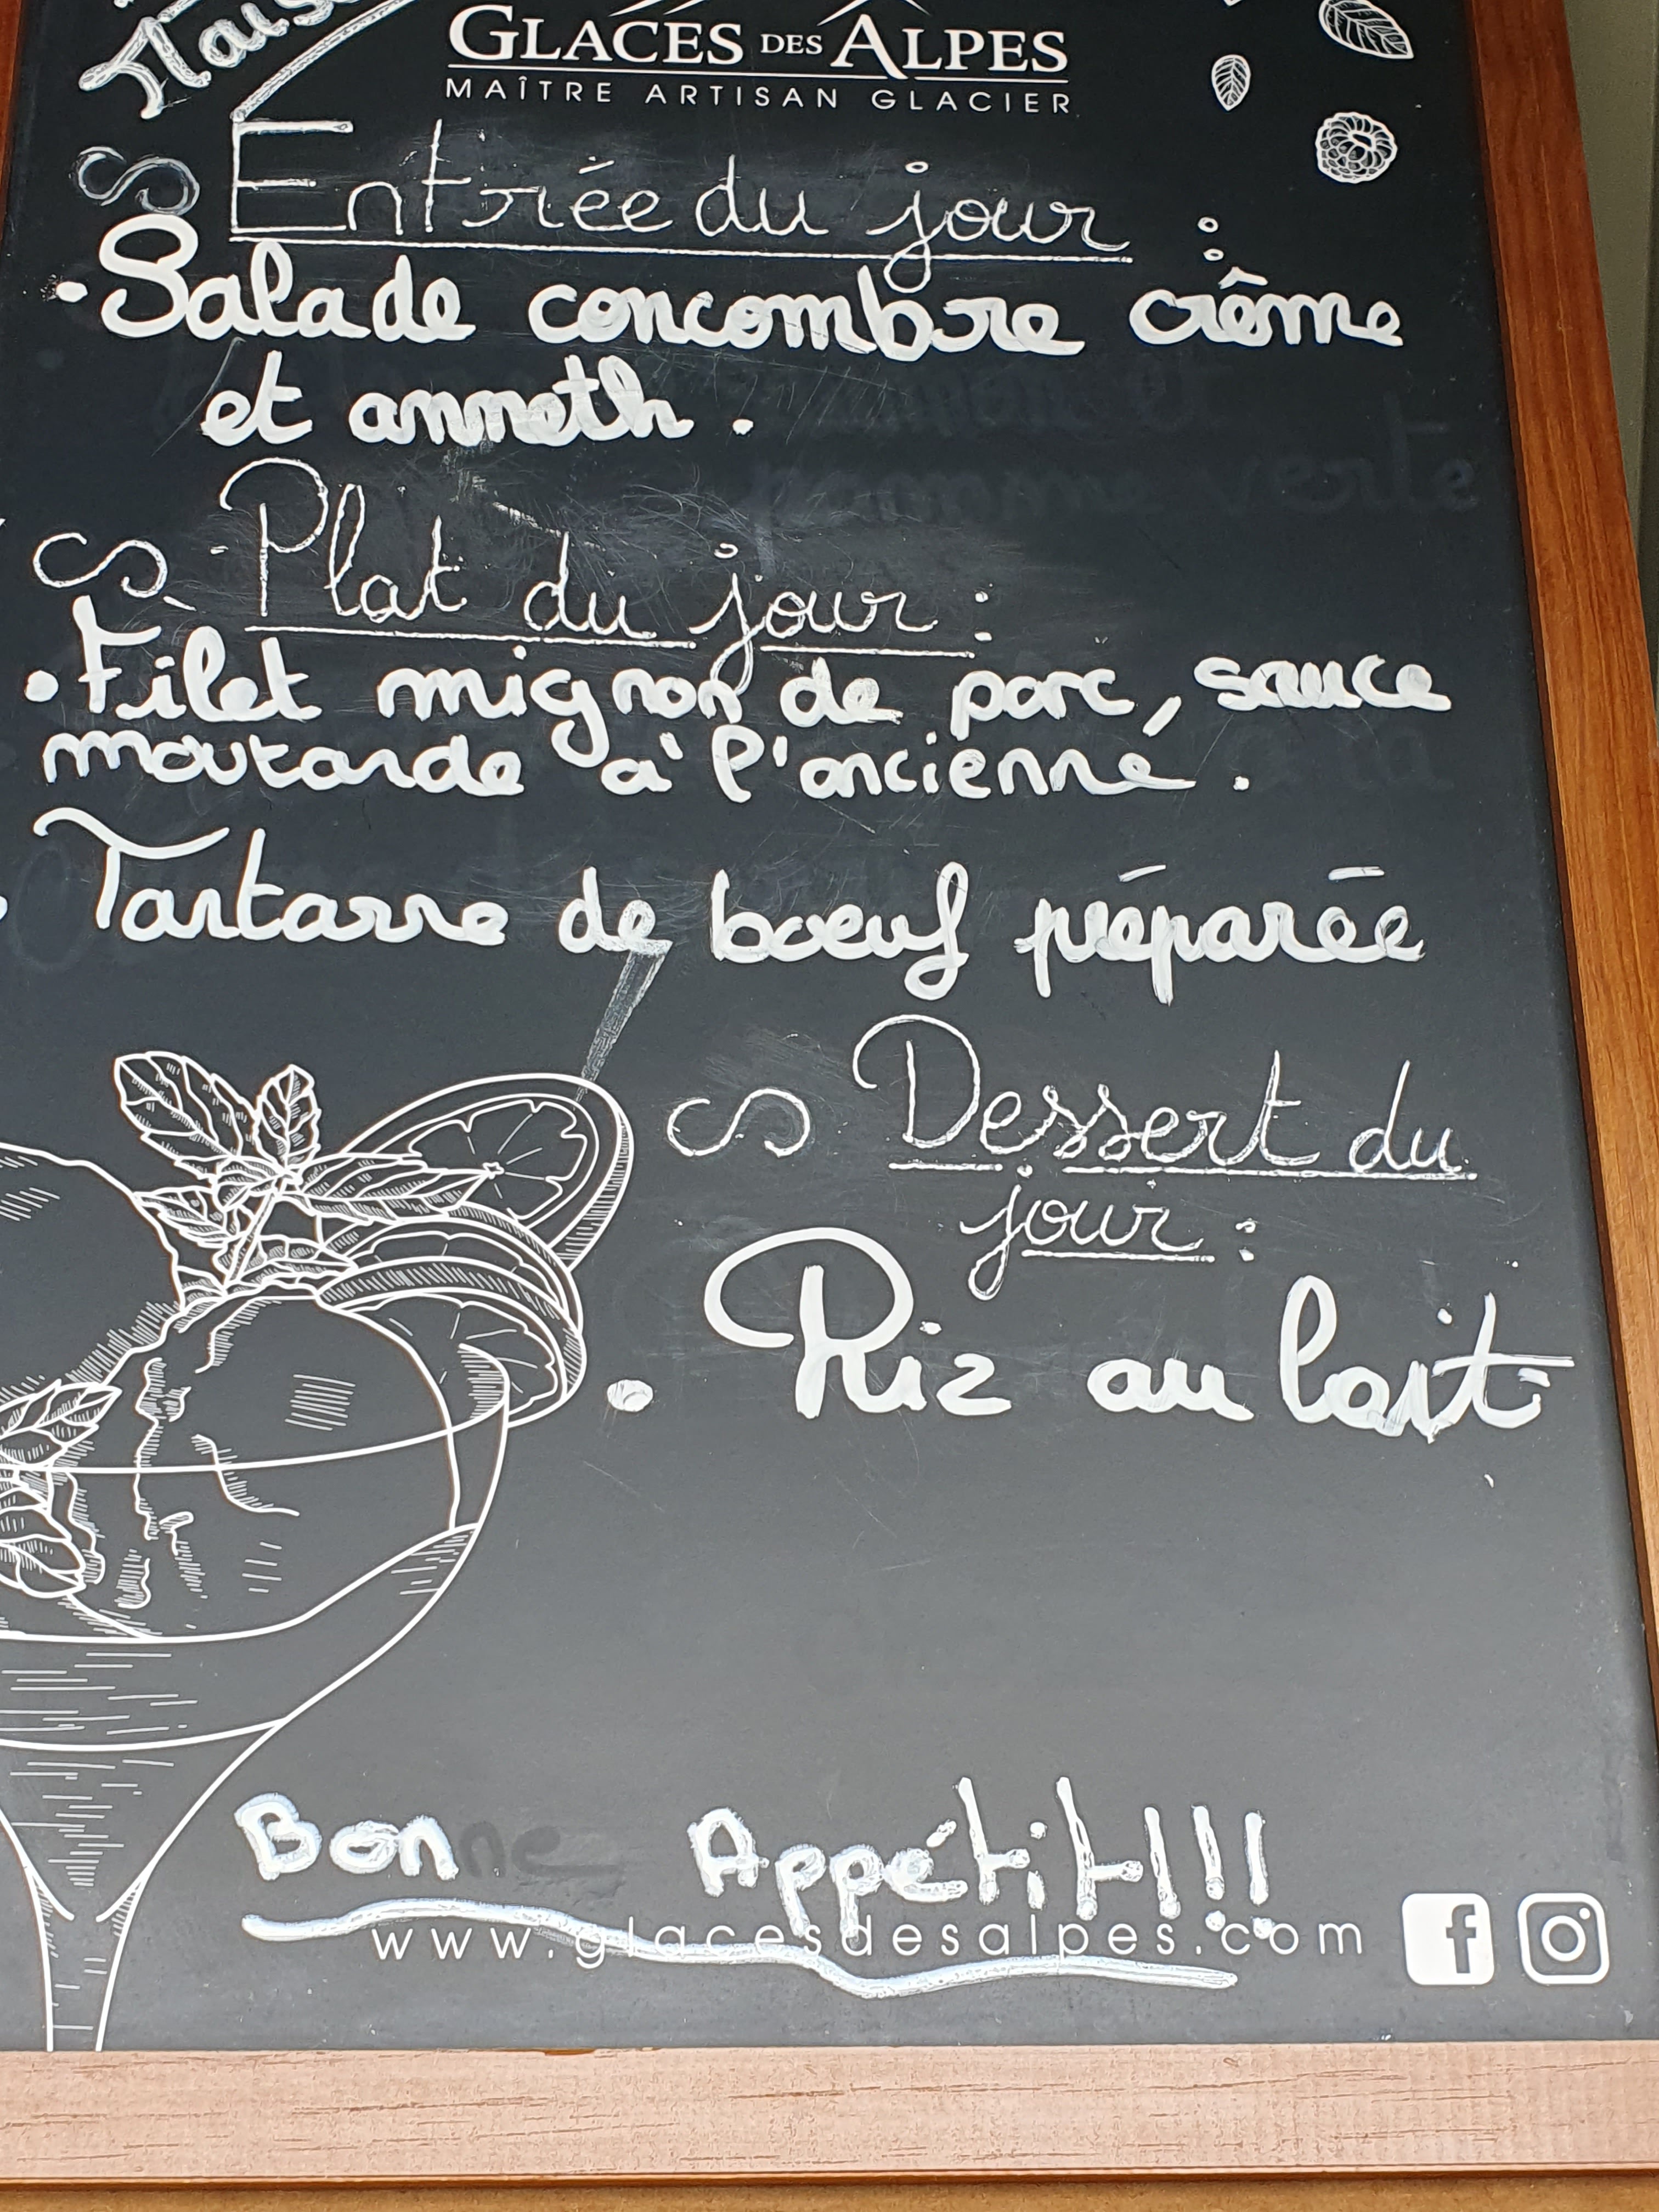 GLACES DES ALPES
MAÎTRE ARTISAN GLACIER
Entrée du jour :
• Salade concombre crême
et anneth .
Plat du jour :
• Filet mignon de porc, sauce
moutarde à l'ancienne .
• Tartarre de boeuf préparée
Dessert du
jour :
• Riz au lait
Bon Appétit!!!
www.glacesdesalpes.com